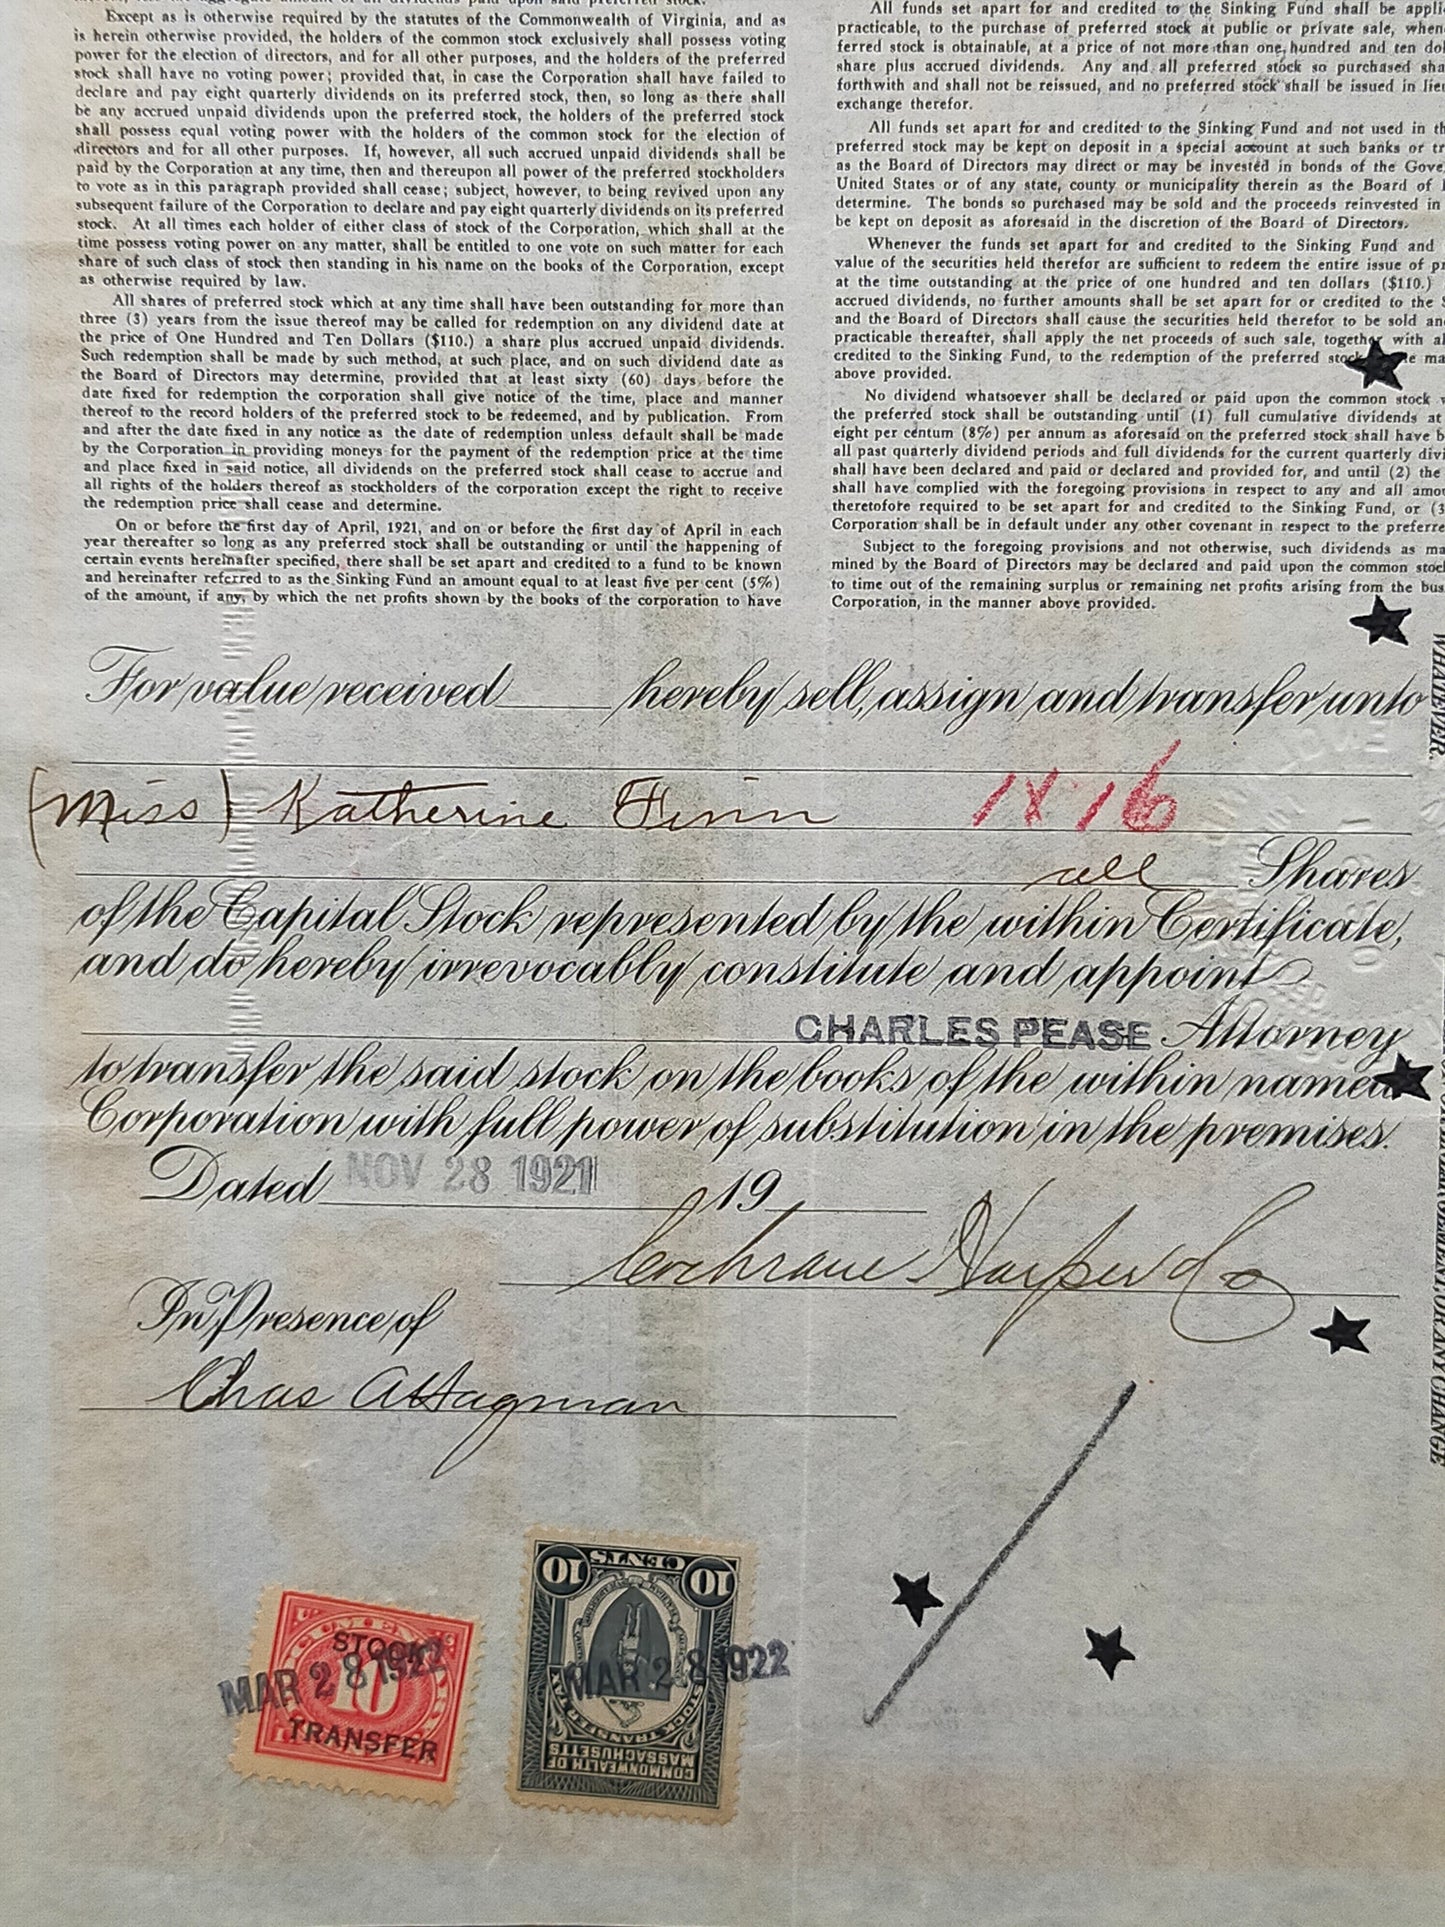 Except as is otherwise required by the statutes of the Commonwealth of Virginia, and as
is herein otherwise provided, the holders of the common stock exclusively shall possess voting
power for the election of directors, and for all other purposes, and the holders of the preferred
stock shall have no voting power; provided that, in case the Corporation shall have failed to
declare and pay eight quarterly dividends on its preferred stock, then, so long as there shall
be any accrued unpaid dividends upon the preferred stock, the holders of the preferred stock
shall possess equal voting power with the holders of the common stock for the election of
directors and for all other purposes. If, however, all such accrued unpaid dividends shall be
paid by the Corporation at any time, then and thereupon all power of the preferred stockholders
to vote as in this paragraph provided shall cease; subject, however, to being revived upon any
subsequent failure of the Corporation to declare and pay eight quarterly dividends on its preferred
stock. At all times each holder of either class of stock of the Corporation, which shall at the
time possess voting power on any matter, shall be entitled to one vote on such matter for each
share of such class of stock then standing in his name on the books of the Corporation, except
as otherwise required by law.
All shares of preferred stock which at any time shall have been outstanding for more than
three (3) years from the issue thereof may be called for redemption on any dividend date at
the price of One Hundred and Ten Dollars ($110.) a share plus accrued unpaid dividends.
Such redemption shall be made by such method, at such place, and on such dividend date as
the Board of Directors may determine, provided that at least sixty (60) days before the
date fixed for redemption the corporation shall give notice of the time, place and manner
thereof to the record holders of the preferred stock to be redeemed, and by publication. From
and after the date fixed in any notice as the date of redemption unless default shall be made
by the Corporation in providing moneys for the payment of the redemption price at the time
and place fixed in said notice, all dividends on the preferred stock shall cease to accrue and
all rights of the holders thereof as stockholders of the corporation except the right to receive
the redemption price shall cease and determine.
On or before the first day of April, 1921, and on or before the first day of April in each
year thereafter so long as any preferred stock shall be outstanding or until the happening of
certain events hereinafter specified, there shall be set apart and credited to a fund to be known
and hereinafter referred to as the Sinking Fund an amount equal to at least five per cent (5%)
of the amount, if any, by which the net profits shown by the books of the corporation to have
All funds set apart for and credited to the Sinking Fund shall be appli
practicable, to the purchase of preferred stock at public or private sale, when
ferred stock is obtainable, at a price of not more than one hundred and ten dol
share plus accrued dividends. Any and all preferred stock so purchased sha
forthwith and shall not be reissued, and no preferred stock shall be issued in lieu
exchange therefor.
All funds set apart for and credited to the Sinking Fund and not used in th
preferred stock may be kept on deposit in a special account at such banks or tr
as the Board of Directors may direct or may be invested in bonds of the Gove
United States or of any state, county or municipality therein as the Board of
determine. The bonds so purchased may be sold and the proceeds reinvested in
be kept on deposit as aforesaid in the discretion of the Board of Directors.
Whenever the funds set apart for and credited to the Sinking Fund and
value of the securities held therefor are sufficient to redeem the entire issue of pr
at the time outstanding at the price of one hundred and ten dollars ($110.)
accrued dividends, no further amounts shall be set apart for or credited to the S
and the Board of Directors shall cause the securities held therefor to be sold and
practicable thereafter, shall apply the net proceeds of such sale, together with al
credited to the Sinking Fund, to the redemption of the preferred stock ma
above provided.
No dividend whatsoever shall be declared or paid upon the common stock
the preferred stock shall be outstanding until (1) full cumulative dividends at
eight per centum (8%) per annum as aforesaid on the preferred stock shall have b
all past quarterly dividend periods and full dividends for the current quarterly divi
shall have been declared and paid or declared and provided for, and until (2) the
shall have complied with the foregoing provisions in respect to any and all amou
theretofore required to be set apart for and credited to the Sinking Fund, or (3
Corporation shall be in default under any other covenant in respect to the preferre
Subject to the foregoing provisions and not otherwise, such dividends as ma
mined by the Board of Directors may be declared and paid upon the common stoc
to time out of the remaining surplus or remaining net profits arising from the bus
Corporation, in the manner above provided.
For value received hereby sell, assign and transfer unto
(Miss) Katherine Finn 1816
all Shares
of the Capital Stock represented by the within Certificate,
and do hereby irrevocably constitute and appoint
CHARLES PEASE Attorney
to transfer the said stock on the books of the within named
Corporation with full power of substitution in the premises.
Dated NOV 28 1921 19
Cochrane Harper & Co
In Presence of
Chas A Hagman
STOCK
MAR 28 1922
10
TRANSFER
10 CENTS 10
MAR 28 1922
STOCK TRANSFER TAX
COMMONWEALTH OF
MASSACHUSETTS
WHATEVER.
ENLARGEMENT, OR ANY CHANGE